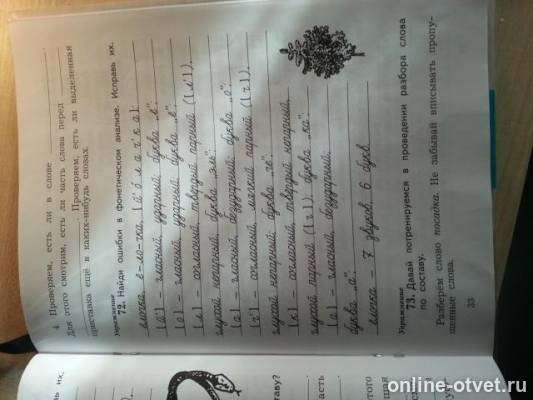 4. Проверяем, есть ли в слове
для этого смотрим, есть ли часть слова перед
. Проверяем, есть ли выделенная
приставка ещё в каких-нибудь словах.
Упражнение
72. Найди ошибки в фонетическом анализе. Исправь их.
- гласный, ударный; буква
- гласный, ударный; буква
[л] - согласный, твёрдый парный ([л']),
глухой непарный; буква „эл".
[а] - гласный, безударный; буква „о".
[ч'] - согласный, мягкий парный ([ч]),
глухой непарный; буква „че".
[к] - согласный, твёрдый непарный,
глухой парный ([г]); буква „ка".
[а] - гласный, безударный;
буква „а".
- 7 звуков, 6 букв
Упражнение
73. Давай потренируемся в проведении разбора слова
по составу.
Разберём слово посадка. Не забывай вписывать пропу-
щенные слова.
33
их.
ставу?
часть
этого
online-otvet.ru